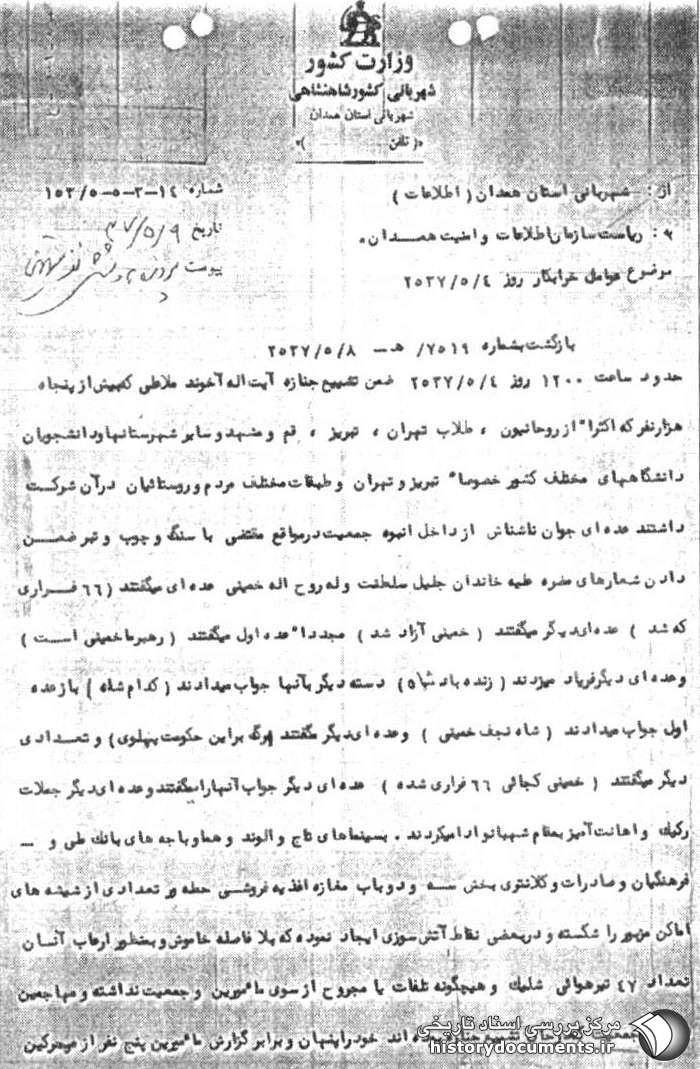 وزارت کشور
شهربانی کشور شاهنشاهی
شهربانی استان همدان
(تلفن )
از : شهربانی استان همدان ( اطلاعات )
شماره ۱۴-۲-۵-۱۵۳/۵
به : ریاست سازمان اطلاعات و امنیت همدان .
تاریخ ۳۷/۵/۹
موضوع عوامل خرابکار روز ۲۵۳۷/۵/۴
پیوست
بازگشت بشماره ۷۵۱۹/ هـ — ۲۵۳۷/۵/۸
حدود ساعت ۱۲۰۰ روز ۲۵۳۷/۵/۴ ضمن تشییع جنازه آیت اله آخوند ملاعلی که بیش از پنجاه
هزار نفر که اکثرا" از روحانیون ، طلاب تهران ، تبریز ، قم و مشهد و سایر شهرستانها و دانشجویان
دانشگاههای مختلف کشور خصوصا" تبریز و تهران و طبقات مختلف مردم و روستائیان در آن شرکت
داشتند عده ای جوان ناشناس از داخل انبوه جمعیت در مواقع مقتضی با سنگ و چوب و تبر ضمن
دادن شعارهای مضره علیه خاندان جلیل سلطنت و له روح اله خمینی عده ای میگفتند ( ۶۶ فراری
که شد ) عده ای دیگر میگفتند ( خمینی آزاد شد ) مجددا" عده اول میگفتند ( رهبر ما خمینی است )
و عده ای دیگر فریاد میزدند ( زنده باد شاه ) دسته دیگر بآنها جواب میدادند ( کدام شاه ) باز عده
اول جواب میدادند ( شاه نجف خمینی ) و عده ای دیگر میگفتند (مرگ بر این حکومت پهلوی) و تعدادی
دیگر میگفتند ( خمینی کجائی ۶۶ فراری شده ) عده ای دیگر جواب آنها را میگفتند و عده ای دیگر جملات
رکیک و اهانت آمیز بمقام شهبانو ادا میکردند . بسینماهای تاج و الوند و هما و باجه های بانک ملی و —
فرهنگیان و صادرات و کلانتری بخش سه و دو باب مغازه اغذیه فروشی حمله ور تعدادی از شیشه های
اماکن مزبور را شکسته و در بعضی نقاط آتش سوزی ایجاد نموده که بلا فاصله خاموش و بمنظور ارعاب آنسان
تعداد ۴۷ تیر هوائی شلیک و هیچگونه تلفات یا مجروح از سوی مأمورین و جمعیت نداشته و مهاجمین
اند خود را پنهان و برابر گزارش مأمورین پنج نفر از محرکین
مرکز بررسی اسناد تاریخی
historydocuments.ir